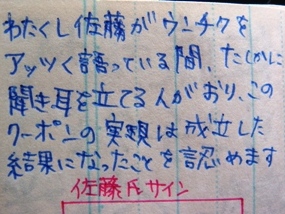 わたくし佐藤がウンチクを
アッツく語っている間、たしかに
聞き耳を立てる人がおり、この
クーポンの実現は成立した
結果になったことを認めます
佐藤氏サイン